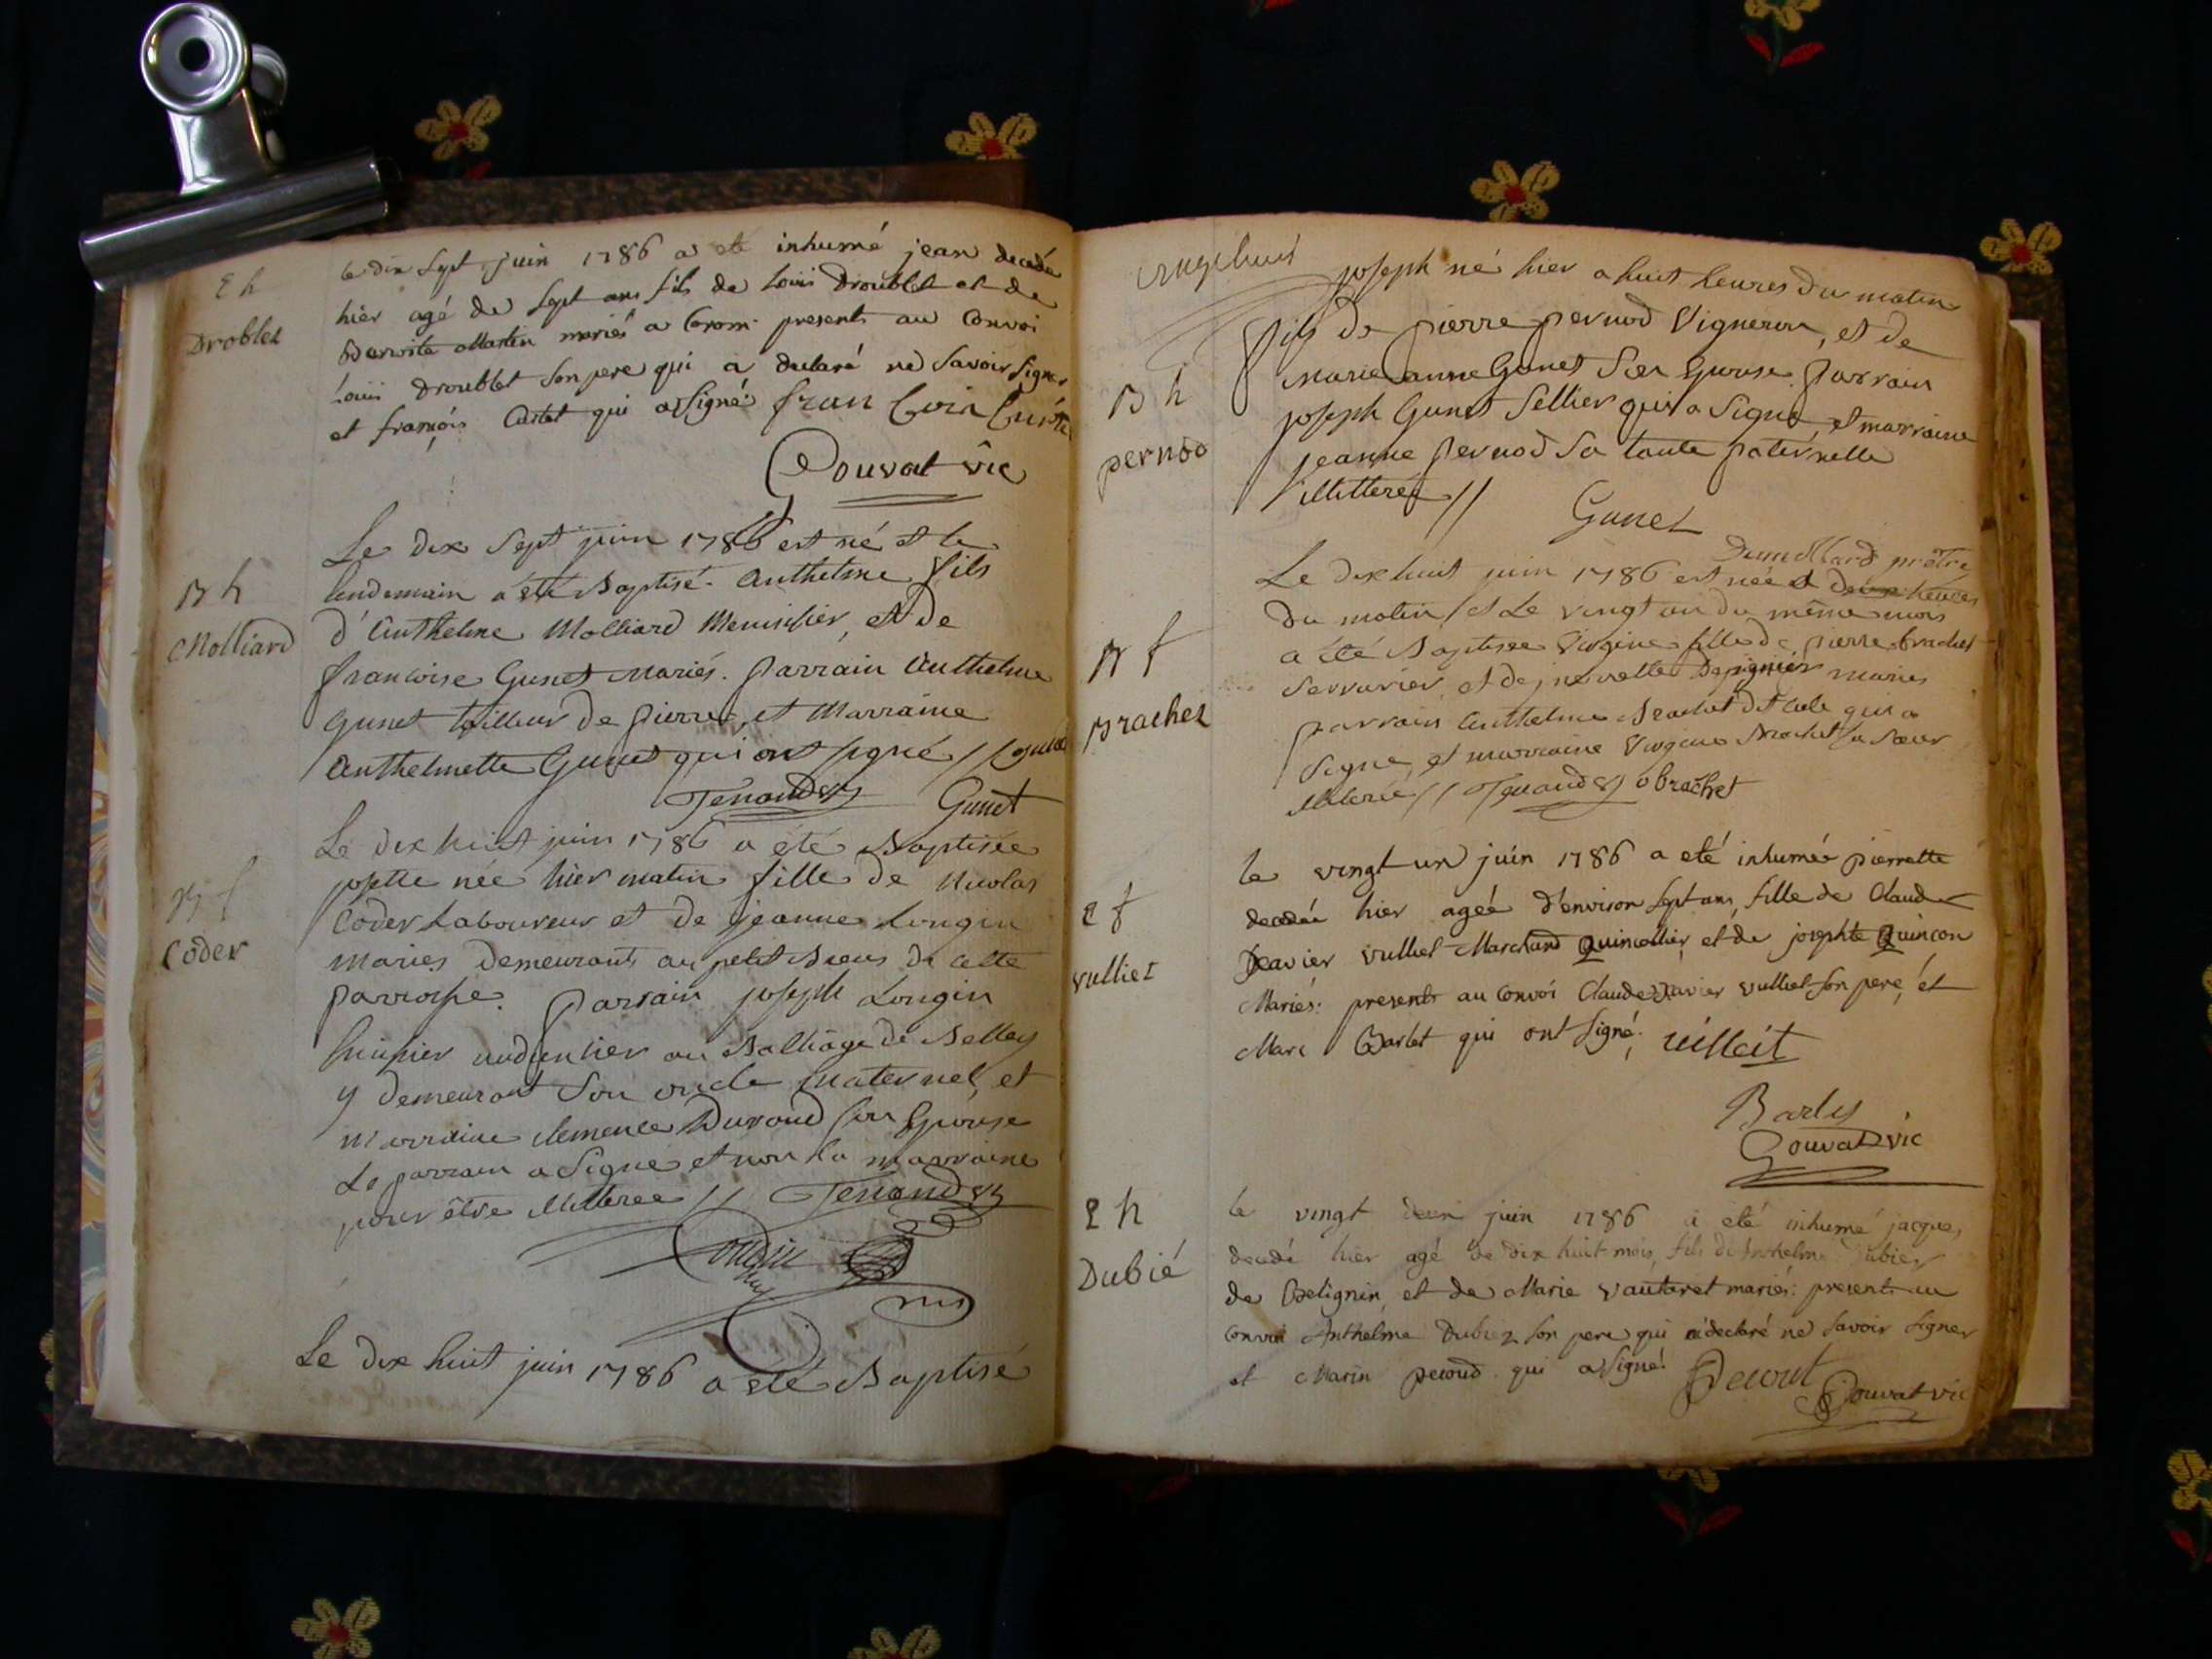 2 h
Droblet
le dix sept juin 1786 a été inhumé jean decedé
hier agé de sept ans fils de Louis Droublet et de
Benoite Martin mariés a presents au Convoi
Louis Droublet son pere qui a declaré ne savoir signer
et françois Curtet qui a signé
Gouvat vic
B h
Molliard
Le dix sept juin 1786 est né et le
lendemain a été Baptisé Anthelme fils
d'Anthelme Molliard Menuisier, et de
francoise Gunet mariés. parrain Anthelme
Gunet tailleur de pierre, et Marraine
Anthelmette Gunet qui ont signé //
Tenand Gunet
B f
Coder
Le dix huit juin 1786 a été Baptisée
josette née hier matin fille de Nicolas
Coder Laboureur et de jeanne Longin
mariés Demeurants au petit de cette
parroisse. parrain joseph Longin
huissier audiencier au Balliage de Belley
y demeurant son oncle maternel, et
marraine clemence Durand son Epouse
Le parrain a signé et non la marraine
pour être illitteree // Tenand
Longin
Le dix huit juin 1786 a été Baptisé
joseph né hier a huit heures du matin
B h
pernod
fils de pierre pernod Vigneron, et de
Marie anne Gunet son Epouse. parrain
joseph Gunet Sellier qui a signé, et marraine
jeanne pernod sa tante paternelle
illitterée //
Gunet
Dumollard prêtre
B f
Brachet
Le dix huit juin 1786 est née a deux heures
du matin, et Le vingt un du même mois
a été Baptisee Virginie fille de pierre brachet
Serrurier, et de mariés
parrain Anthelme Brachet dit qui a
Signé, et marraine Brachet sa soeur
illiterée // Tenand brachet
2 f
vulliet
le vingt un juin 1786 a eté inhumée pierrette
decedée hier ageé d'environ sept ans, fille de Claude
Xavier vulliet Marchand Quincallier, et de josephte Quincon
Mariés: presents au convoi Claude Xavier vulliet son pere, et
Marc Barlet qui ont signé.
Gouvat vic
2 h
Dubié
le vingt deux juin 1786 a eté inhumé jacque,
decedé hier agé de dix huit mois, fils d'Anthelme Dubier
de Belignin, et de Marie vautaret mariés: presents au
convoi Anthelme Dubiez son pere qui a declaré ne savoir signer
et Marin peroud qui a signé.
Gouvat vic